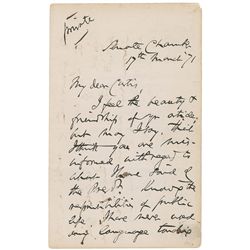 private
Senate Chamber
17th March '71
My dear Curtis,
I feel the beauty &
friendship of yr article,
but may I say that
I think you are mis-
informed with regard to
what I have said of
the Presdt. Knowing the
responsibilities of public
life, I have never used
any language touching